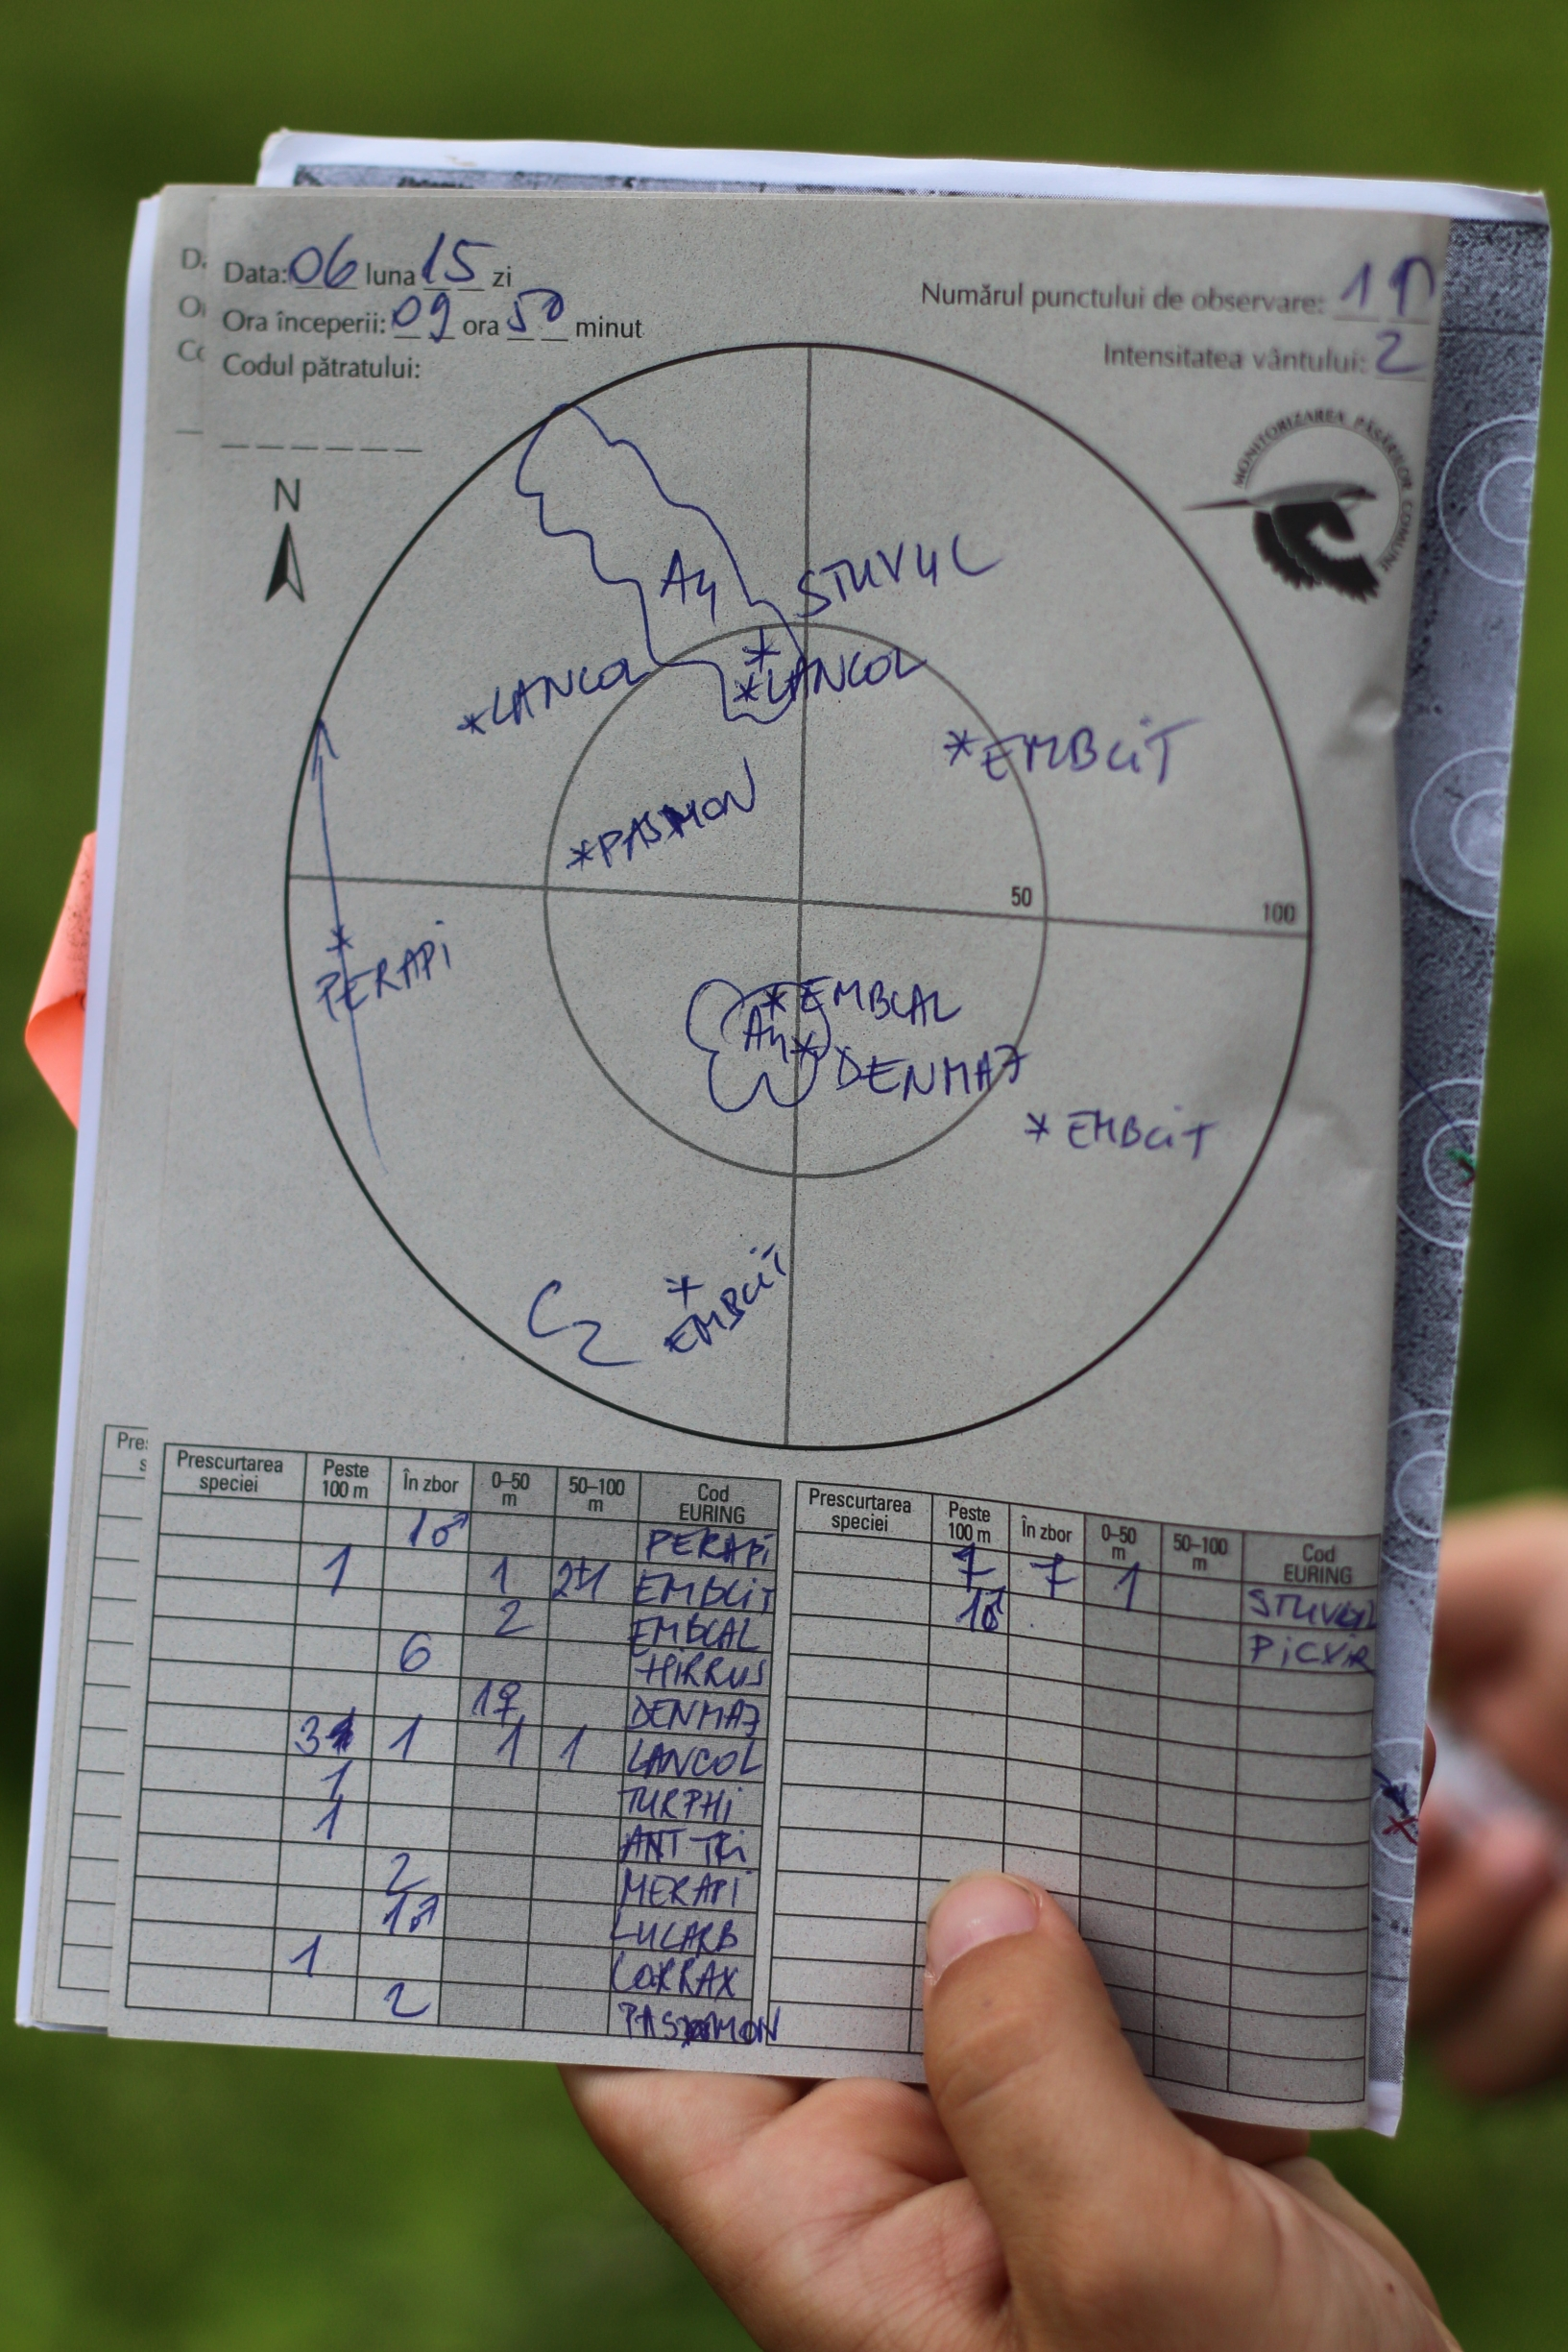 Data: 06 luna 15 zi
Ora începerii: 09 ora 50 minut
Codul pătratului:
Numărul punctului de observare:
Intensitatea vântului: 2
MONITORIZAREA PĂSĂRILOR COMUNE
N
A4
STUVUL
*LANCOL
*LANCOL
*EMBCiT
*PASMON
50
100
PERAPi
*EMBCAL
A4
*DENMAJ
*EMBCiT
C2
*EMBCiT
Prescurtarea speciei Peste 100 m În zbor 0–50 m 50–100 m Cod EURING
1♂ PERAPi
1 1 EMBCiT
2 EMBCAL
6 HIRRUS
1♀ DENMAJ
3 1 1 1 LANCOL
1 TURPHi
1 ANTTRi
2 MERAPi
1♂ LULARB
1 CORRAX
2 PASMON
Prescurtarea speciei Peste 100 m În zbor 0–50 m 50–100 m Cod EURING
7 1 STUVUL
1♂ PiCViR